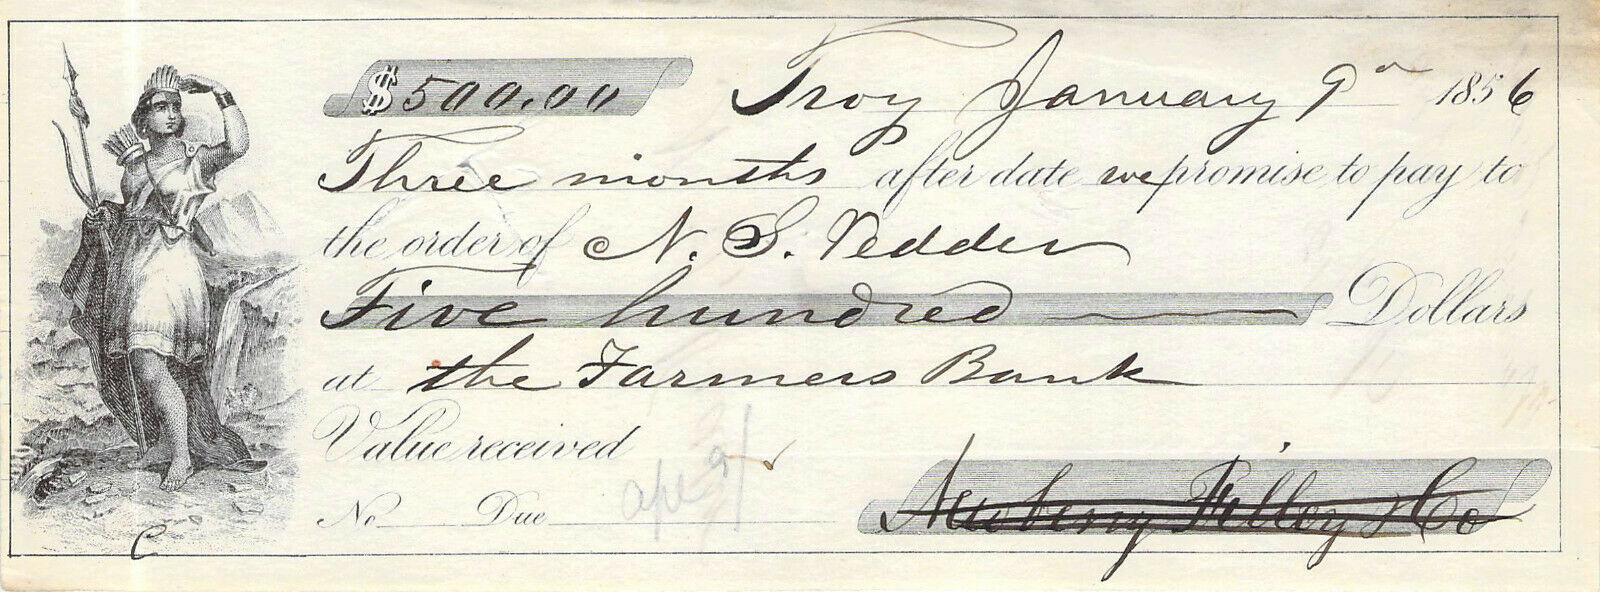 $500.00 Troy January 9th 1856
Three months after date we promise to pay to
the order of N. S. Vedder
Five hundred Dollars
at the Farmers Bank
Value received
No Due
Newberry Filley & Co
C